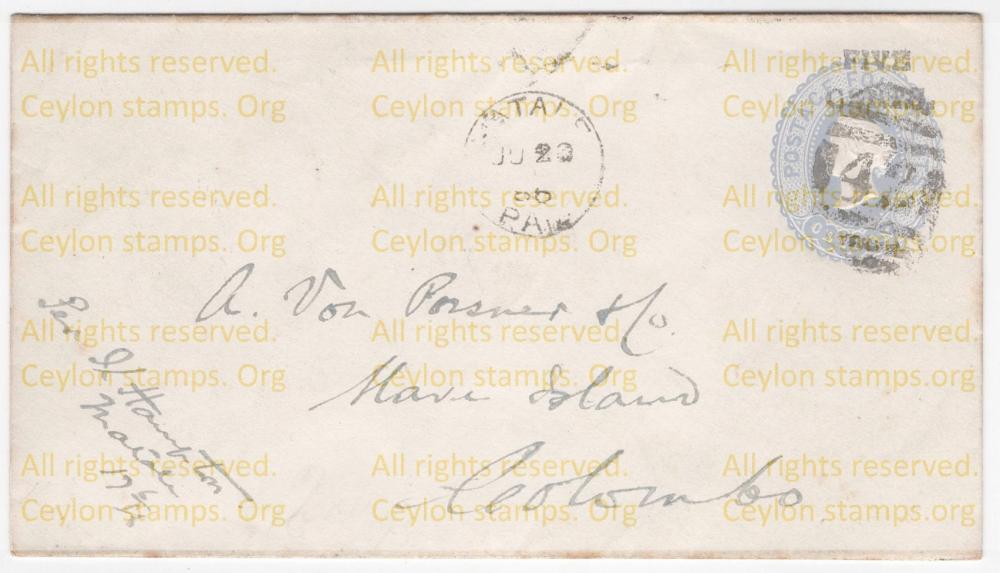 All rights reserved. All rights reserved. All rights reserved.
Ceylon stamps. Org Ceylon stamps. Org Ceylon stamps. Org
FIVE
POSTAGE
JU 23
86
PAID
4
All rights reserved. All rights reserved. All rights reserved.
Ceylon stamps. Org Ceylon stamps. Org Ceylon stamps. Org
A. Von Possner & Co.
All rights reserved. All rights reserved. All rights reserved.
Ceylon stamps. Org Ceylon stamps. Org Ceylon stamps. Org
Slave Island
Colombo
Hampton
All rights reserved. All rights reserved. All rights reserved.
Ceylon stamps. Org Ceylon stamps. Org Ceylon stamps. Org